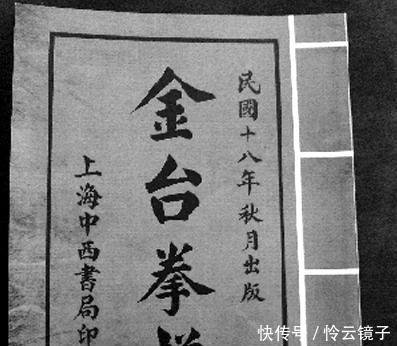 民國十八年秋月出版
金台拳
上海中西書局印
快传号/怜云镜子